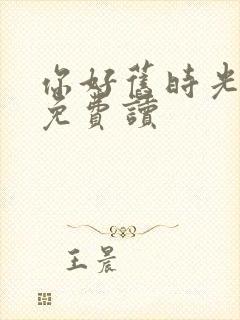 你好舊時光
免費讀
王晨